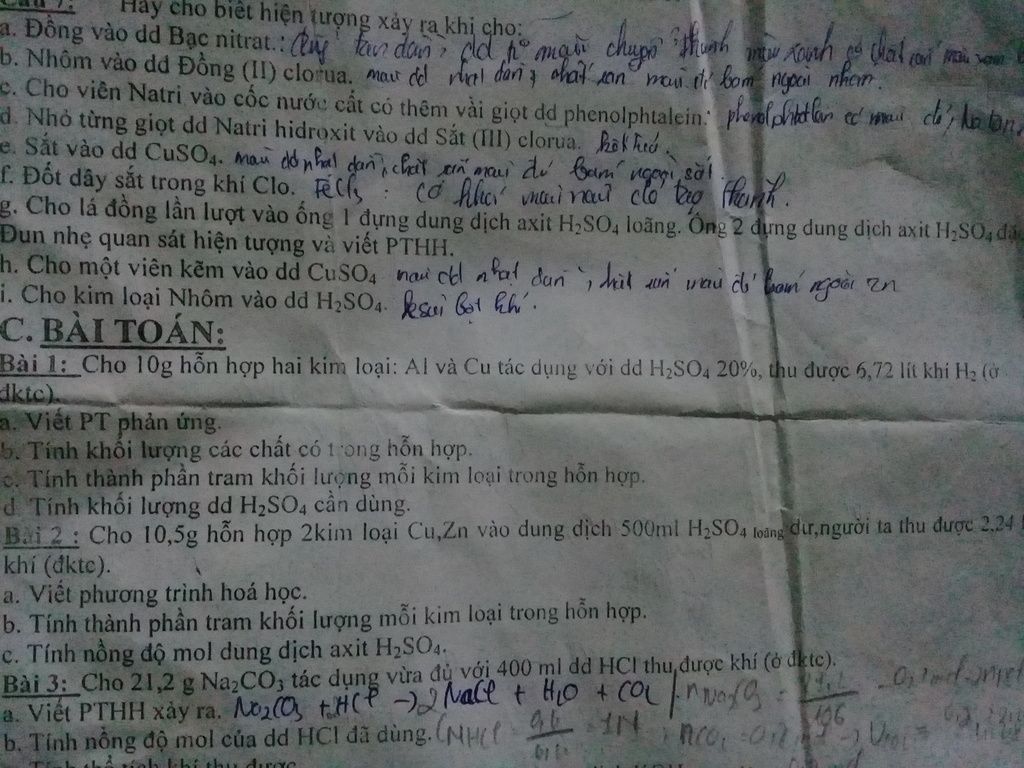 Câu 7: Hãy cho biết hiện tượng xảy ra khi cho:
a. Đồng vào dd Bạc nitrat.: tan dần, dd ko màu chuyển thành màu xanh có chất rắn màu xám
b. Nhôm vào dd Đồng (II) clorua. màu dd nhạt dần, chất rắn màu đỏ bám ngoài nhôm.
c. Cho viên Natri vào cốc nước cất có thêm vài giọt dd phenolphtalein: có màu đỏ,
d. Nhỏ từng giọt dd Natri hidroxit vào dd Sắt (III) clorua.
e. Sắt vào dd CuSO4. màu dd nhạt dần, chất rắn màu đỏ bám ngoài sắt
f. Đốt dây sắt trong khí Clo. FeCl3: có khói màu nâu đỏ tạo thành.
g. Cho lá đồng lần lượt vào ống 1 đựng dung dịch axit H2SO4 loãng. Ống 2 đựng dung dịch axit H2SO4
Đun nhẹ quan sát hiện tượng và viết PTHH.
h. Cho một viên kẽm vào dd CuSO4 màu dd nhạt dần, chất rắn màu đỏ bám ngoài Zn
i. Cho kim loại Nhôm vào dd H2SO4. sủi bọt khí.
C. BÀI TOÁN:
Bài 1: Cho 10g hỗn hợp hai kim loại: Al và Cu tác dụng với dd H2SO4 20%, thu được 6,72 lít khí H2 (ở
đktc).
a. Viết PT phản ứng.
b. Tính khối lượng các chất có trong hỗn hợp.
c. Tính thành phần tram khối lượng mỗi kim loại trong hỗn hợp.
d. Tính khối lượng dd H2SO4 cần dùng.
Bài 2 : Cho 10,5g hỗn hợp 2kim loại Cu,Zn vào dung dịch 500ml H2SO4 loãng dư,người ta thu được 2,24
khí (đktc).
a. Viết phương trình hoá học.
b. Tính thành phần tram khối lượng mỗi kim loại trong hỗn hợp.
c. Tính nồng độ mol dung dịch axit H2SO4.
Bài 3: Cho 21,2 g Na2CO3 tác dụng vừa đủ với 400 ml dd HCl thu được khí (ở đktc).
a. Viết PTHH xảy ra. Na2CO3 + HCl → 2 NaCl + H2O + CO2
b. Tính nồng độ mol của dd HCl đã dùng.